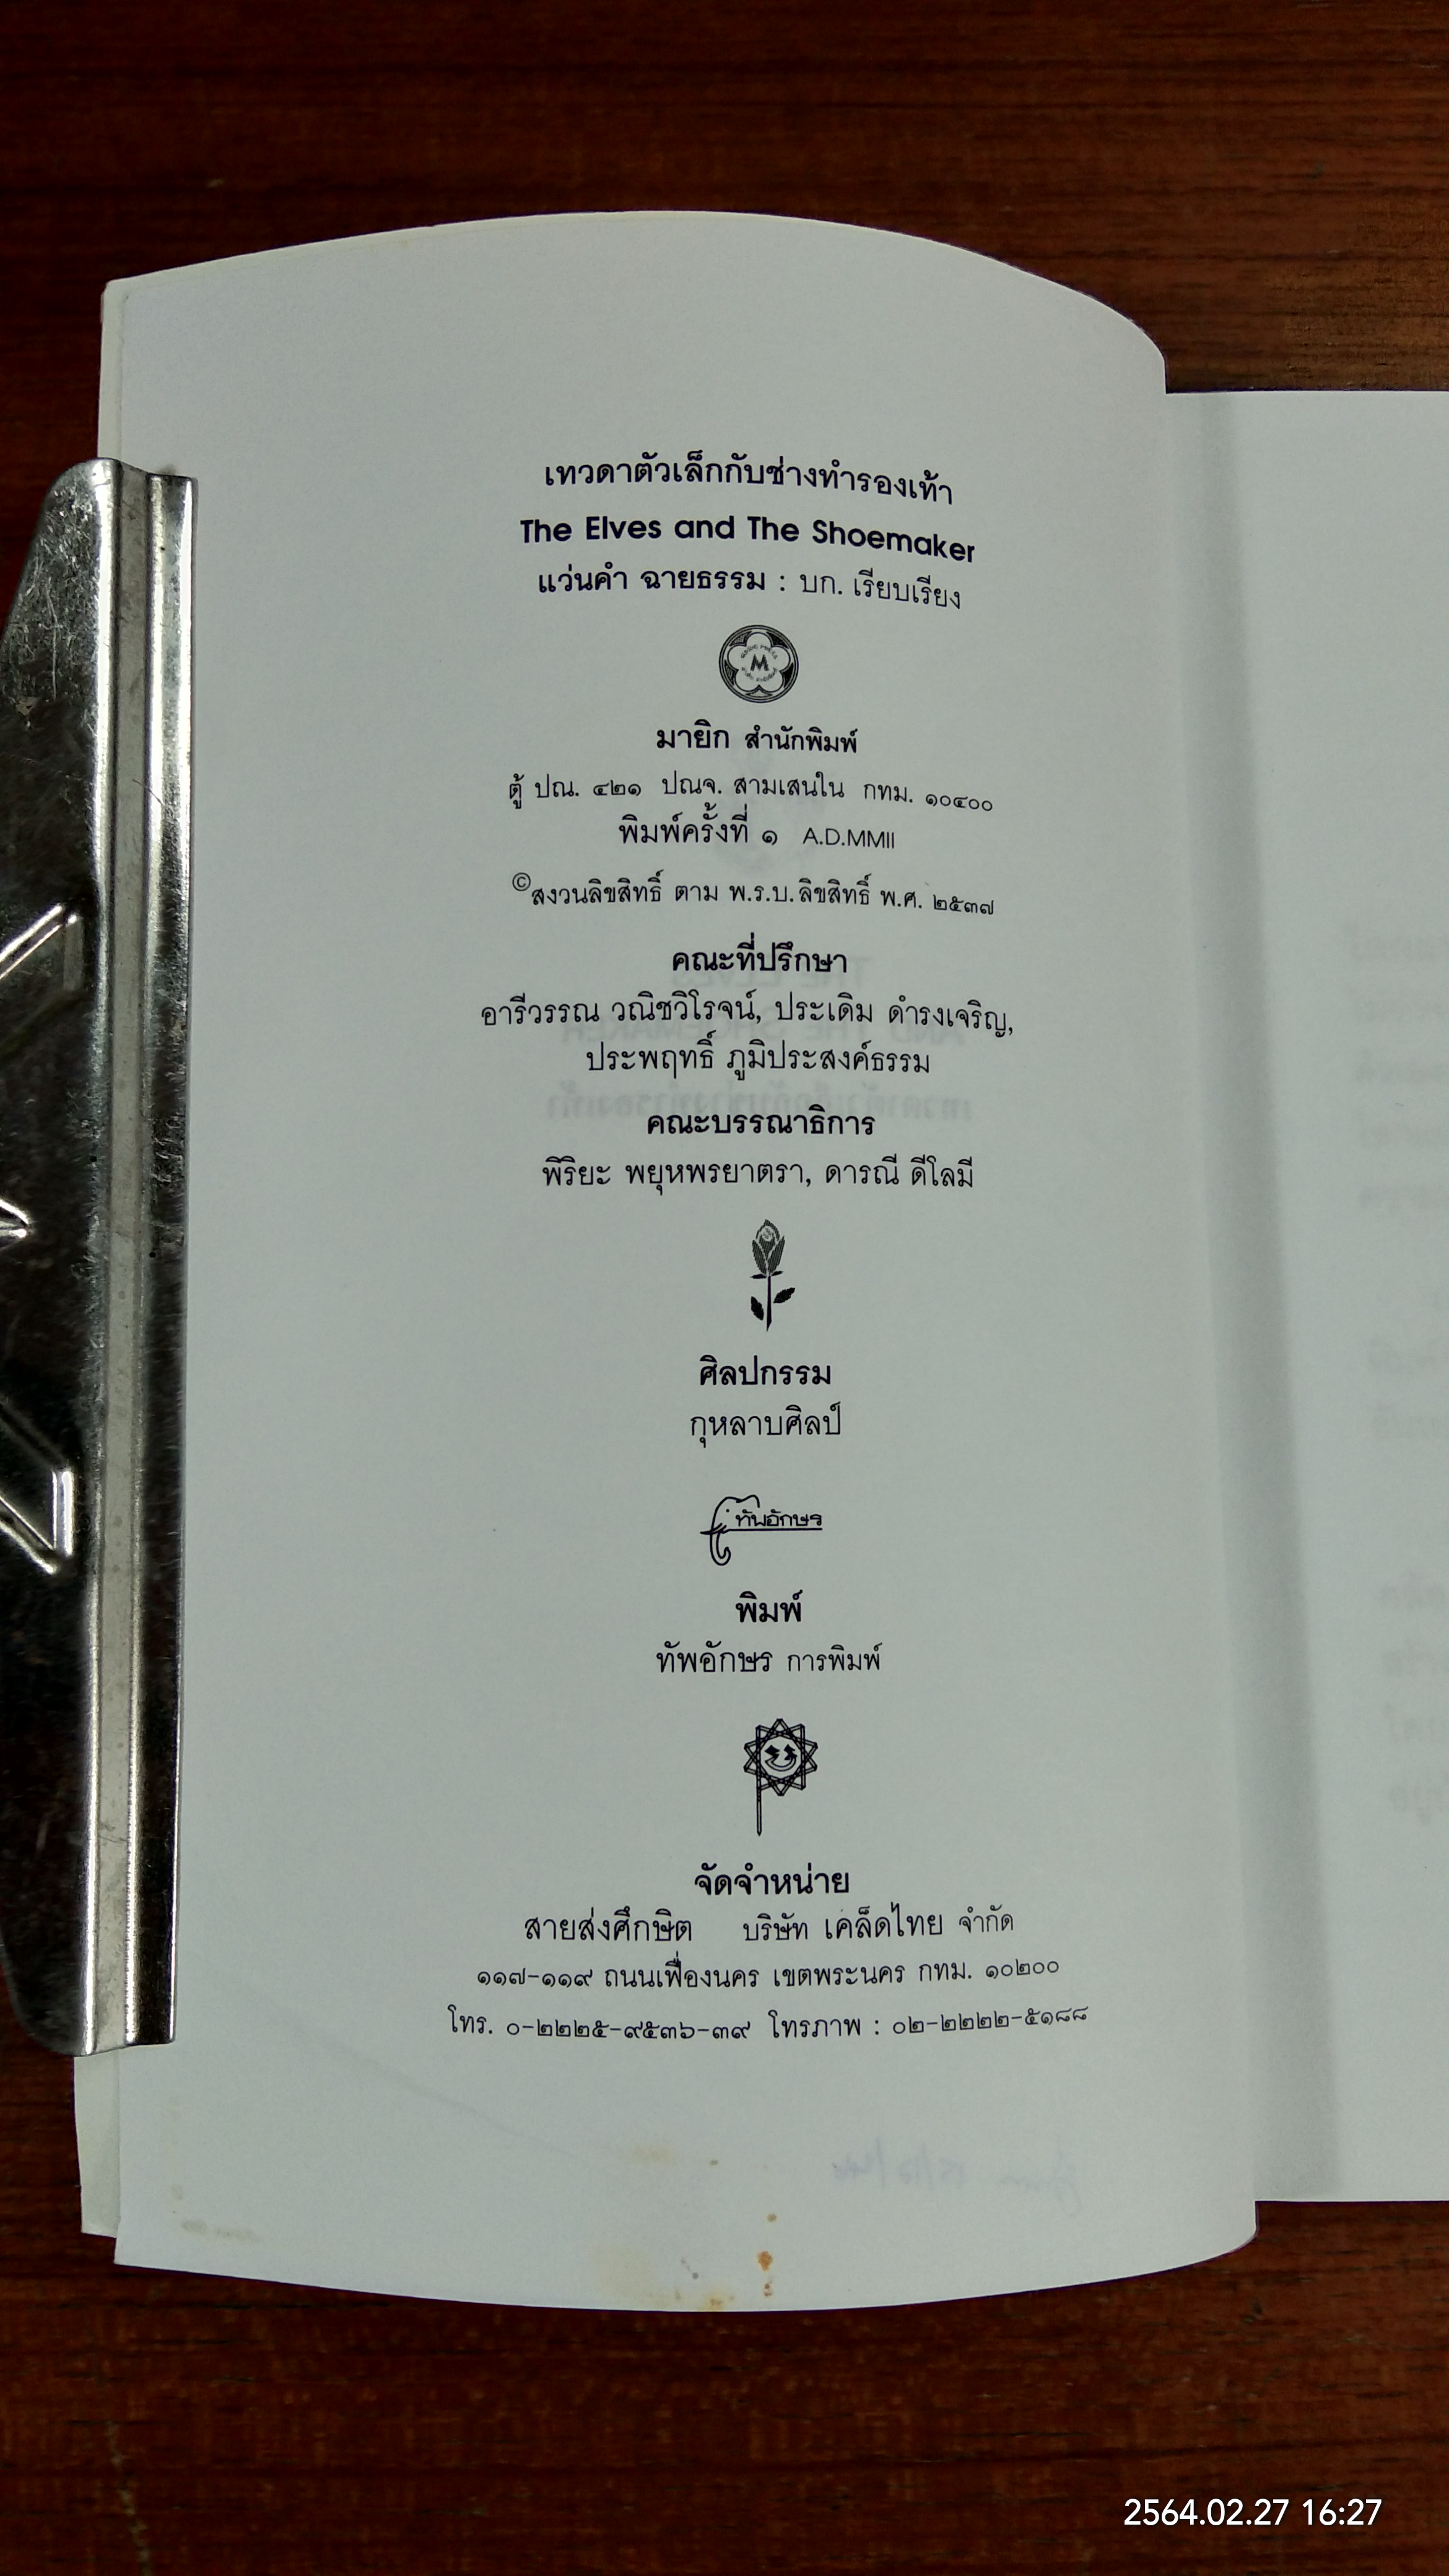 เทวดาตัวเล็กกับช่างทำรองเท้า
The Elves and The Shoemaker
แว่นคำ ฉายธรรม : บก. เรียบเรียง
M
มายิก สำนักพิมพ์
ตู้ ปณ. ๔๒๑ ปณจ. สามเสนใน กทม. ๑๐๔๐๐
พิมพ์ครั้งที่ ๑ A.D.MMII
©สงวนลิขสิทธิ์ ตาม พ.ร.บ.ลิขสิทธิ์ พ.ศ. ๒๕๓๗
คณะที่ปรึกษา
อารีวรรณ วณิชวิโรจน์, ประเดิม ดำรงเจริญ,
ประพฤทธิ์ ภูมิประสงค์ธรรม
คณะบรรณาธิการ
พิริยะ พยุหพรยาตรา, ดารณี ดีโลมี
ศิลปกรรม
กุหลาบศิลป์
ทัพอักษร
พิมพ์
ทัพอักษร การพิมพ์
จัดจำหน่าย
สายส่งศึกษิต บริษัท เคล็ดไทย จำกัด
๑๑๗-๑๑๙ ถนนเฟื่องนคร เขตพระนคร กทม. ๑๐๒๐๐
โทร. ๐-๒๒๒๕-๙๕๓๖-๓๙ โทรภาพ : ๐๒-๒๒๒๒-๕๑๘๘
2564.02.27 16:27